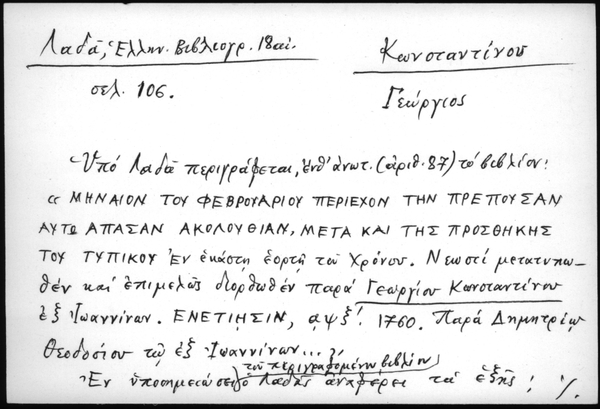 Λαδᾶ, Ἑλλην. Βιβλιογρ. 18 αἰ.
Κωνσταντίνου
σελ. 106.
Γεώργιος
Ὑπό Λαδᾶ περιγράφεται, ἔνθ' ἀνωτ. (ἀριθ. 87) τό βιβλίον:
« ΜΗΝΑΙΟΝ ΤΟΥ ΦΕΒΡΟΥΑΡΙΟΥ ΠΕΡΙΕΧΟΝ ΤΗΝ ΠΡΕΠΟΥΣΑΝ
ΑΥΤΩ ΑΠΑΣΑΝ ΑΚΟΛΟΥΘΙΑΝ, ΜΕΤΑ ΚΑΙ ΤΗΣ ΠΡΟΣΘΗΚΗΣ
ΤΟΥ ΤΥΠΙΚΟΥ Ἐν ἑκάστῃ ἑορτῇ τοῦ Χρόνου. Νεωστί μετατυπω-
θέν καί ἐπιμελῶς διορθωθέν παρά Γεωργίου Κωνσταντίνου
ἐξ Ἰωαννίνων. ΕΝΕΤΙΗΣΙΝ, αψξ'. 1760. Παρά Δημητρίῳ
Θεοδοσίου τῷ ἐξ Ἰωαννίνων...»
τοῦ περιγραφομένου βιβλίου
Ἐν ὑποσημειώσει ὁ Λαδᾶς ἀναφέρει τά ἑξῆς: ./.